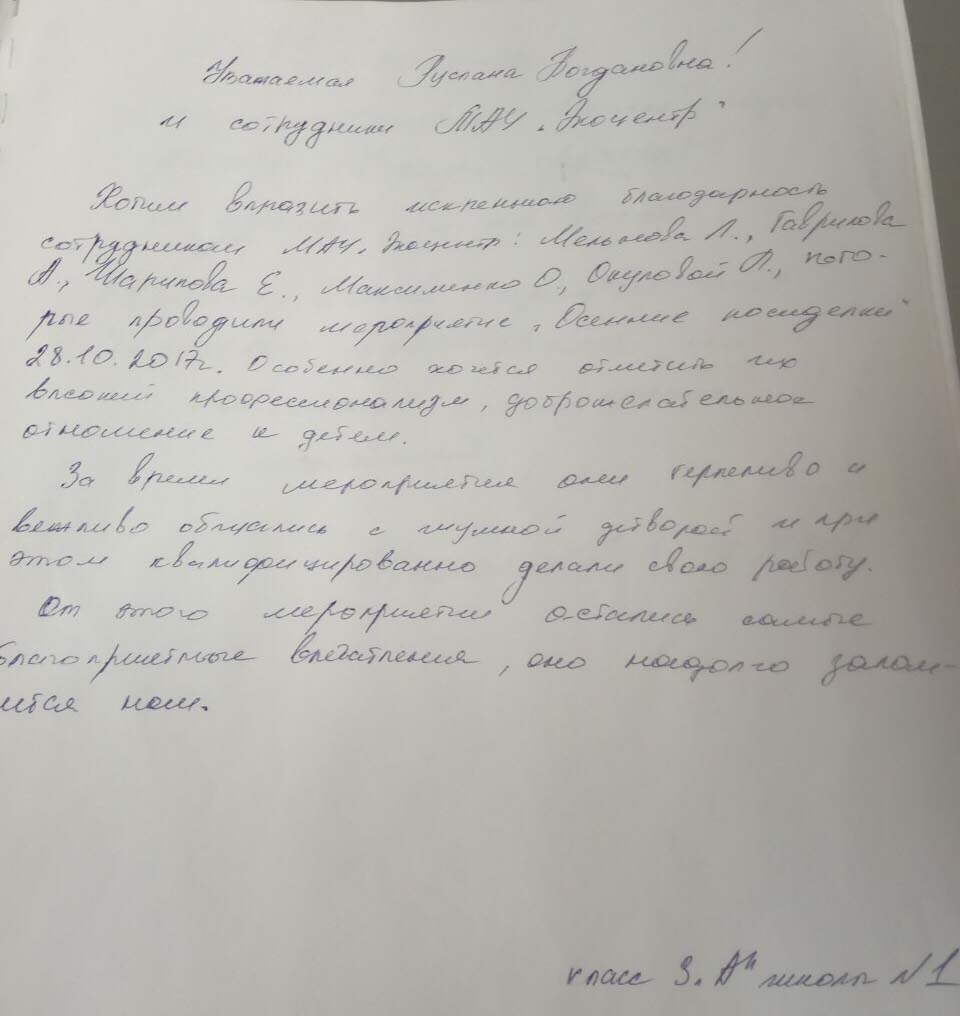 Уважаемая Руслана Богдановна!
и сотрудники МАУ „Экоцентр"
Хотим выразить искреннюю благодарность
сотрудникам МАУ „Экоцентр: Мельнова Л., Гаврилова
А., Шарипова Е., Максименко О, Окуловой Л., кото-
рые проводили мероприятие „Осенние посиделки"
28.10.2017г. Особенно хочется отметить их
высокий профессионализм, доброжелательное
отношение к детем.
За время мероприятия они терпеливо и
вежливо общались с шумной детворой и при
этом квалифицированно делали свою работу.
От этого мероприятия остались самые
благоприятные впечатления, оно надолго запом-
нится нам.
класс 3„А" школы N1